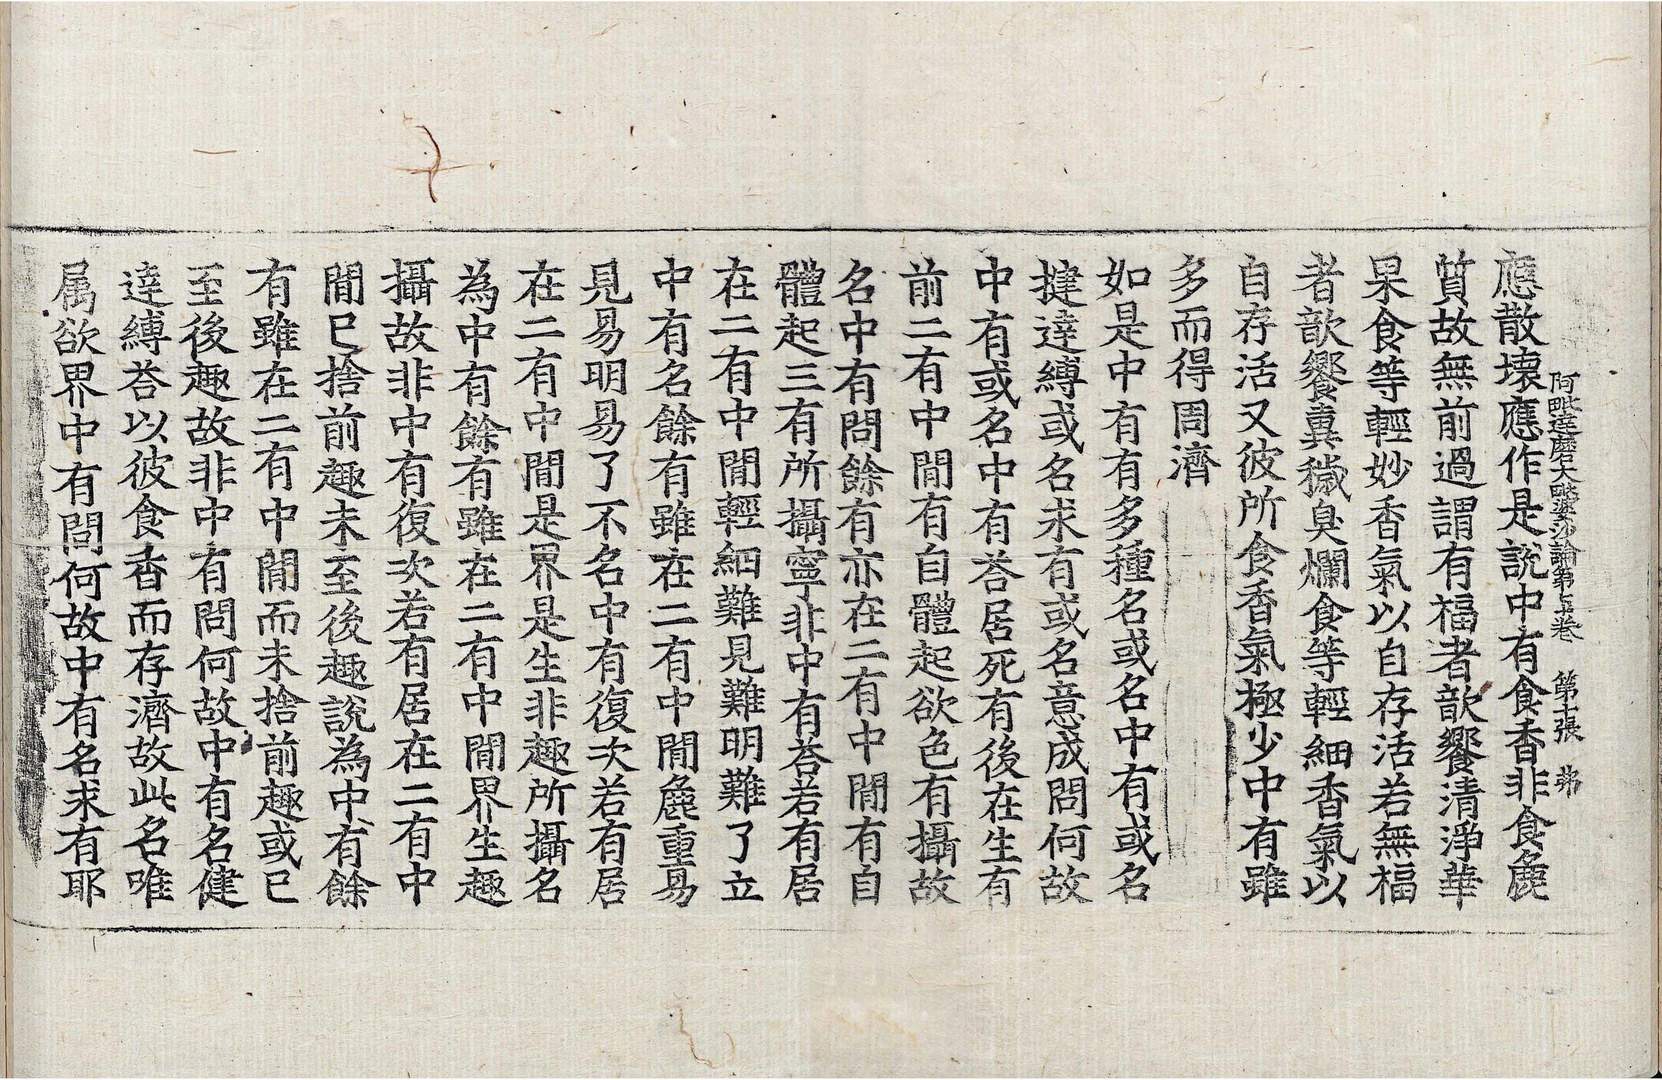 阿毗達磨大毗婆沙論第七十卷 第十張 弗
應散壞應作是說中有食香非食麁
質故無前過謂有福者歆饗清淨華
果食等輕妙香氣以自存活若無福
者歆饗糞穢臭爛食等輕細香氣以
自存活又彼所食香氣極少中有雖
多而得周濟
如是中有有多種名或名中有或名
揵達縛或名求有或名意成問何故
中有或名中有荅居死有後在生有
前二有中閒有自體起欲色有攝故
名中有問餘有亦在二有中閒有自
體起三有所攝寧非中有荅若有居
在二有中閒輕細難見難明難了立
中有名餘有雖在二有中閒麁重易
見易明易了不名中有復次若有居
在二有中閒是界是生非趣所攝名
為中有餘有雖在二有中閒界生趣
攝故非中有復次若有居在二有中
閒已捨前趣未至後趣說為中有餘
有雖在二有中閒而未捨前趣或已
至後趣故非中有問何故中有名健
達縛荅以彼食香而存濟故此名唯
属欲界中有問何故中有名求有耶